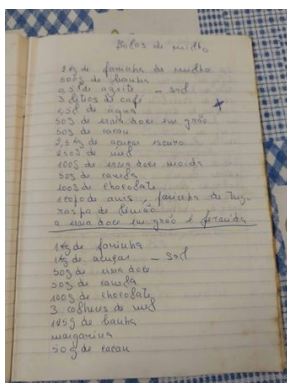 Bolos de milho
1 kg de farinha de milho
500g de banha
de azeite — sal
3 de café
de agua
50g de erva doce em grão
50g de cacau
2,5 kg de açucar escuro
250g de mel
100g de erva doce moida
50g de canela
100g de chocolate
anis farinha de
raspa de limão
a erva doce em grão é fervida
1 kg de farinha
1 kg de açucar — sal
50g de erva doce
50g de canela
100g de chocolate
3 colheres de mel
125g de banha
margarina
50g de cacau